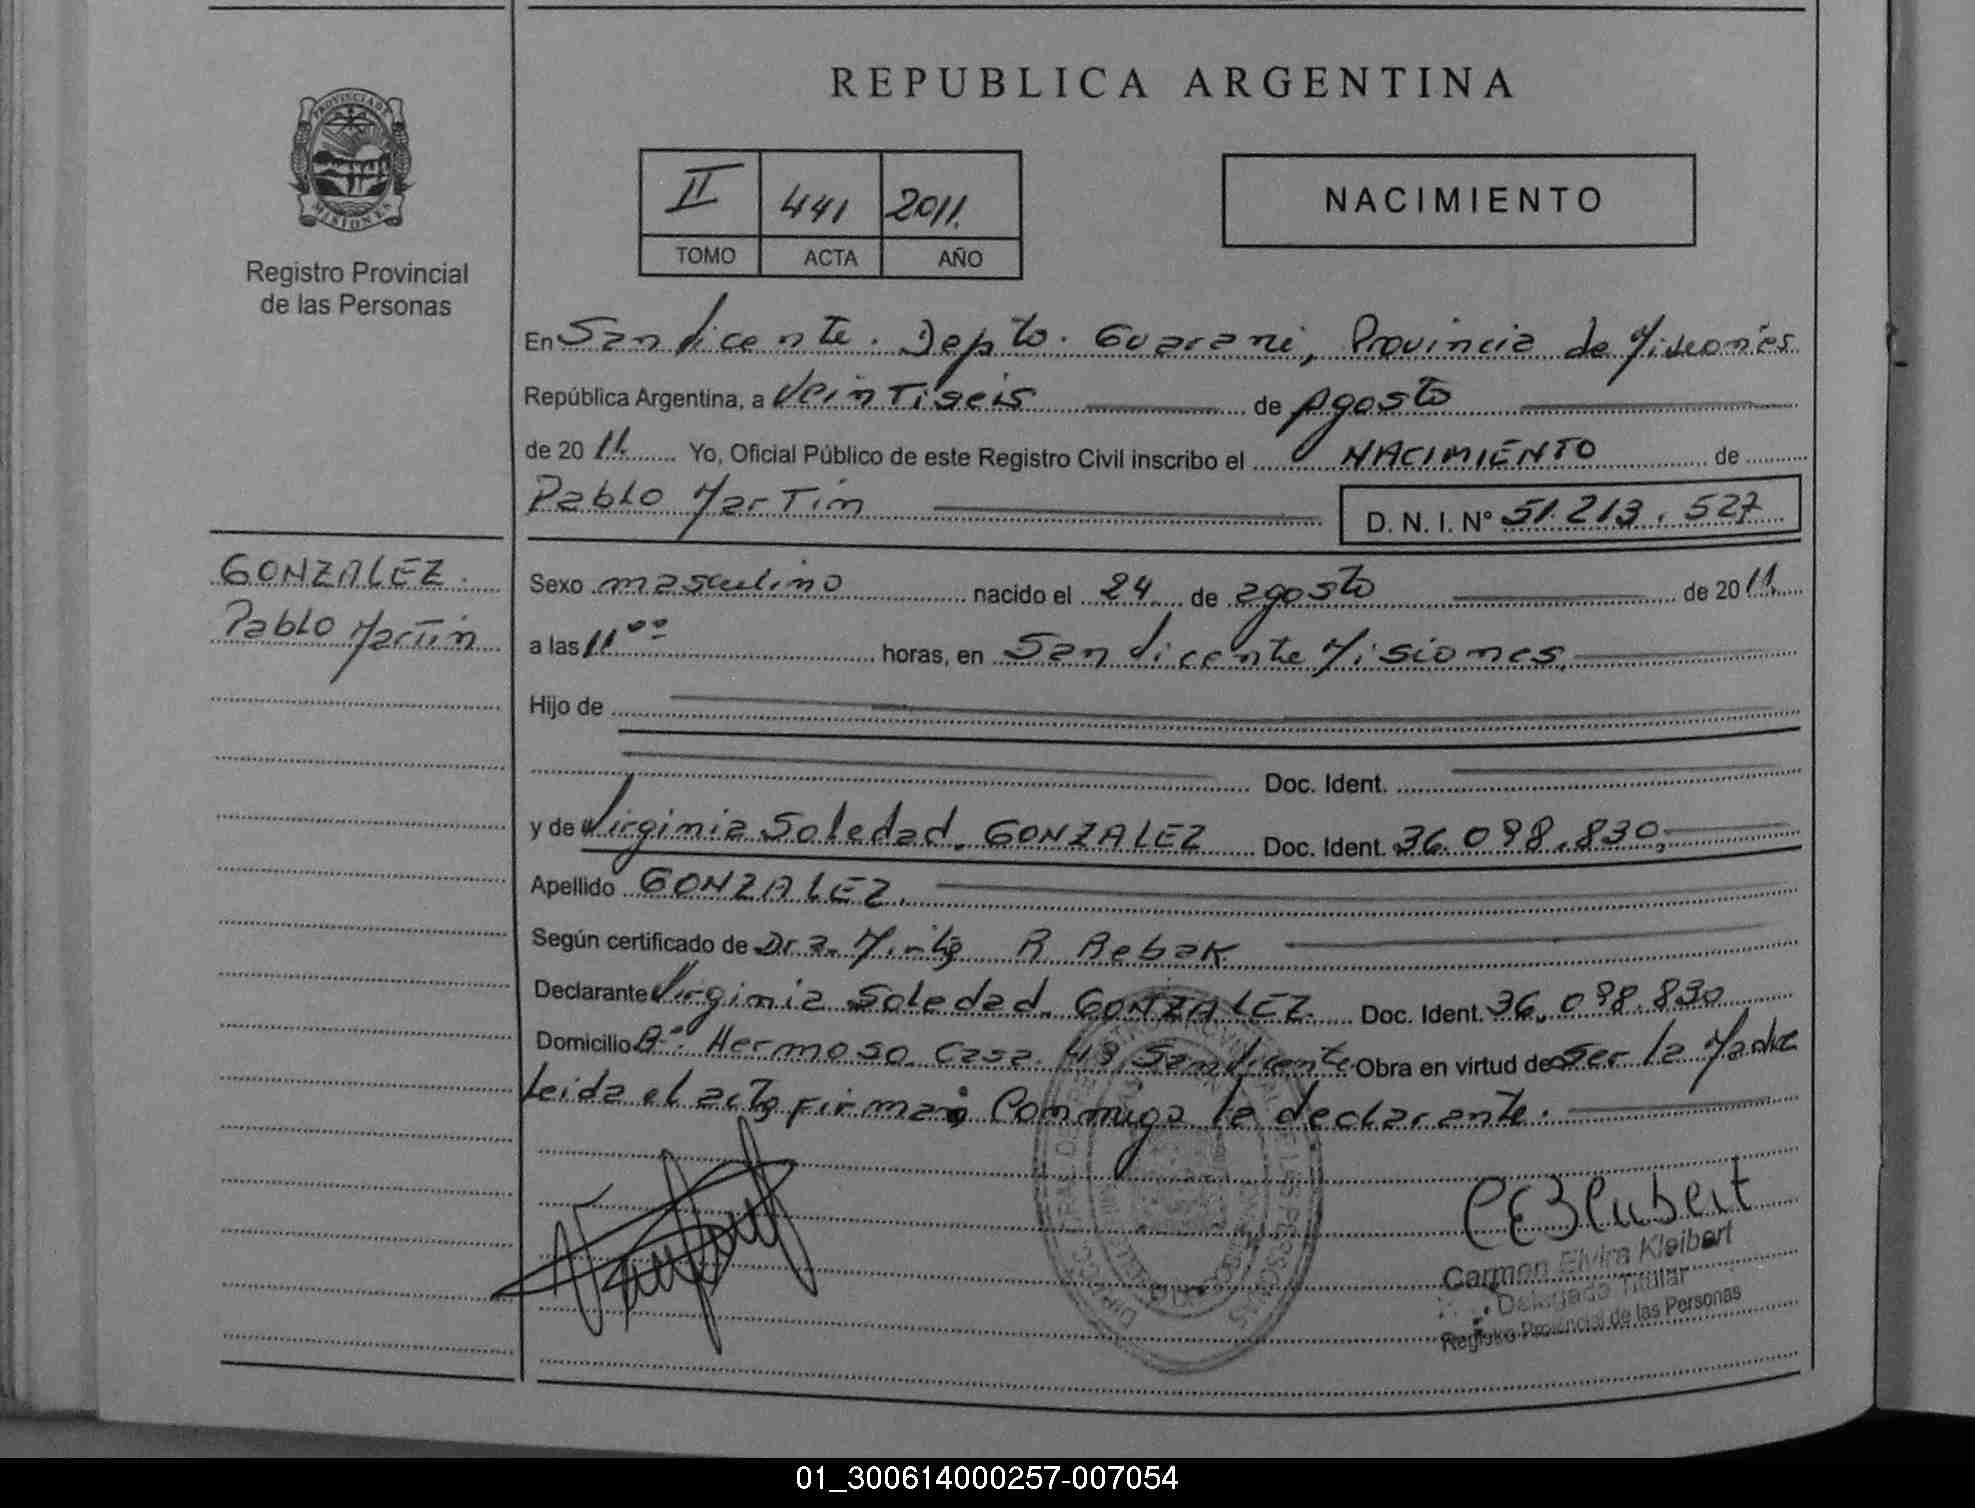 REPUBLICA ARGENTINA
PROVINCIA DE
MISIONES
Registro Provincial
de las Personas
II 441 2011.
TOMO ACTA AÑO
NACIMIENTO
En San Vicente. Depto. Guarani, Provincia de Misiones
República Argentina, a Veintiseis de Agosto
de 2011. Yo, Oficial Público de este Registro Civil inscribo el NACIMIENTO de
Pablo Martin D. N. I. N° 51.213.527
GONZALEZ.
Pablo Martin
Sexo masculino nacido el 24 de agosto de 2011
a las 11°° horas, en San Vicente Misiones.
Hijo de
Doc. Ident.
y de Virginia Soledad. GONZALEZ Doc. Ident. 36.098.830,
Apellido GONZALEZ.
Según certificado de Dra. R Rebak
Declarante Virginia Soledad. GONZALEZ. Doc. Ident. 36.098.830
Domicilio B°: Hermoso Casa 49 San Vicente Obra en virtud de Ser la Madre
Leida el acta firma Conmigo la declarante.
Carmen Elvira Kleibert
Delegada Titular
Registro Provincial de las Personas
01_300614000257-007054